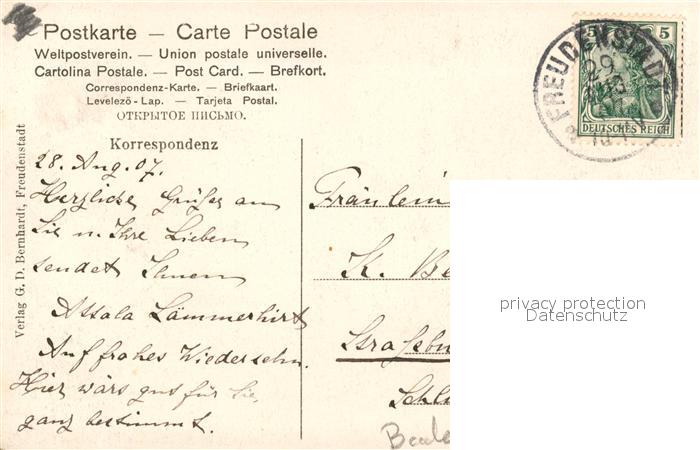 Postkarte — Carte Postale
Weltpostverein. — Union postale universelle.
Cartolina Postale. — Post Card. — Brefkort.
Correspondenz-Karte. — Briefkaart.
Levelezö-Lap. — Tarjeta Postal.
ОТКРЫТОЕ ПИСЬМО.
Korrespondenz
28. Aug. 07.
Herzliche Grüße an
Sie u. Ihre Lieben
sendet Ihnen
Lämmerhirt
Auf frohes Wiedersehn.
Hier wärs gut für Sie,
ganz bestimmt.
Verlag G. D. Bernhardt, Freudenstadt
FREUDENSTADT
29
5 5
DEUTSCHES REICH
Fräulein
K. Be
Straßbu
Schl
privacy protection
Datenschutz